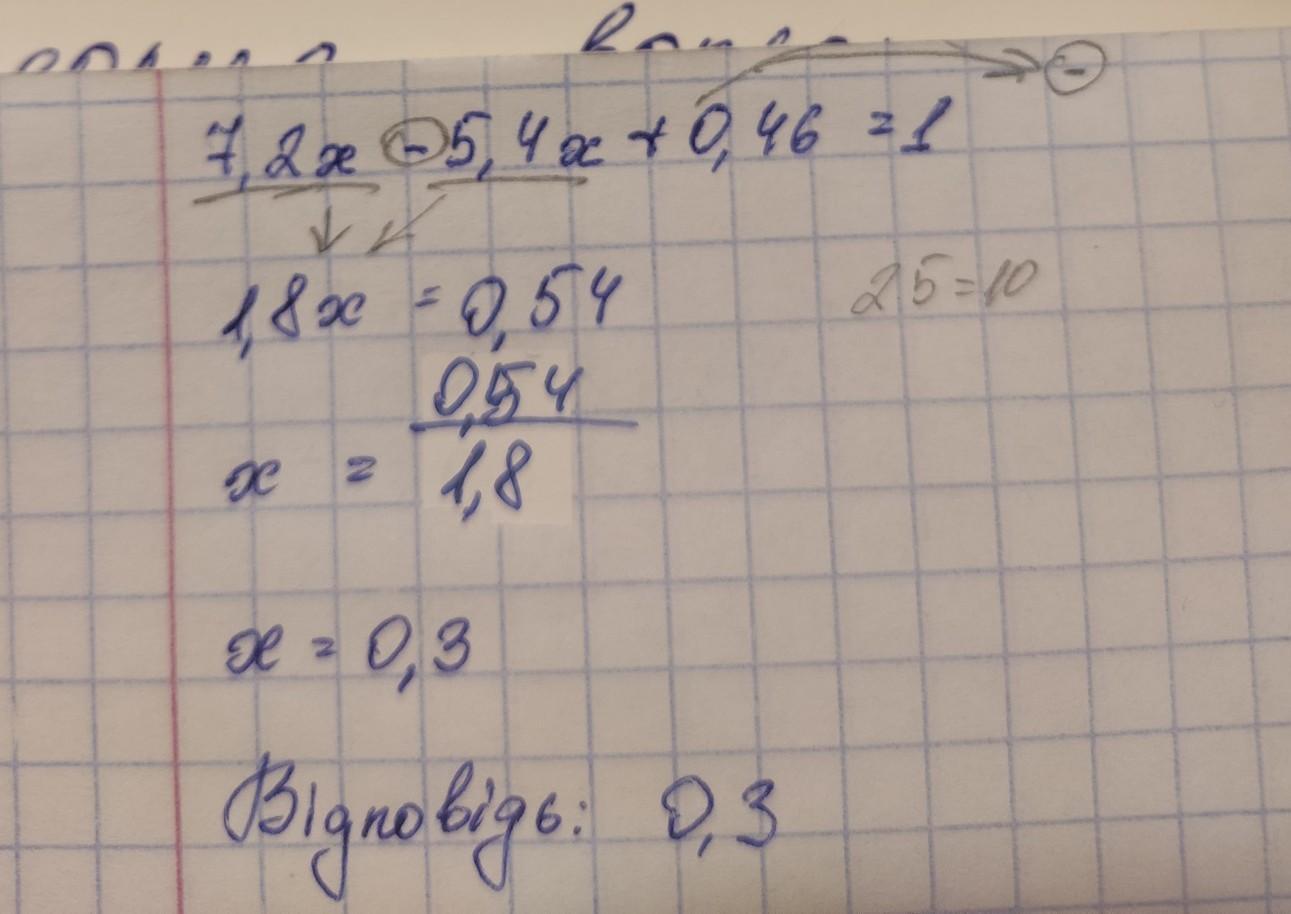 7,2x - 5,4x + 0,46 = 1
-
1,8x = 0,54
25=10
x = 0,54 / 1,8
x = 0,3
Відповідь: 0,3